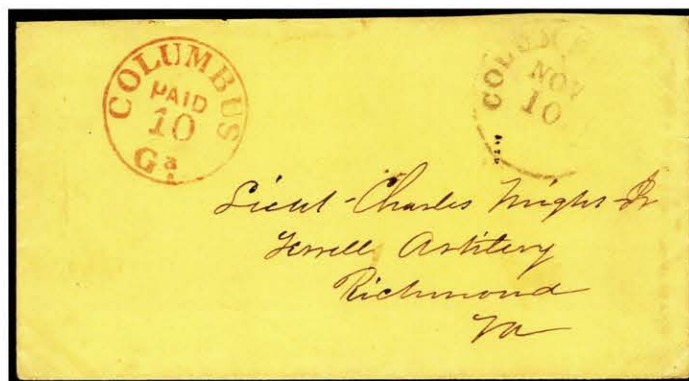 COLUMBUS
PAID
10
Ga.
COLUM
NOV
10
Lieut - Charles Jr
Terrell Artillery
Richmond
Va